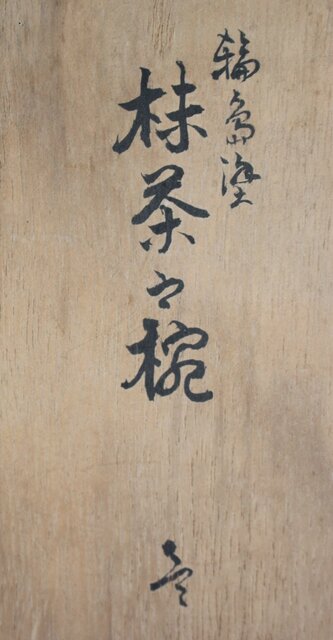 輪島塗
抹茶々椀